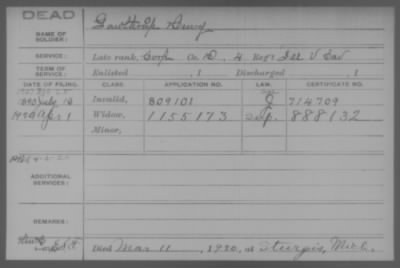 DEAD
NAME OF SOLDIER: Gawthrop Henry
SERVICE: Late rank, Corp Co. D, 4 Reg't Ill V Cav
TERM OF SERVICE: Enlisted , 1 Discharged , 1
DATE OF FILING. CLASS. APPLICATION NO. LAW. CERTIFICATE NO.
1890 July 18 Invalid, 809101 714709
1920 Apr 1 Widow, 1155173 888132
Minor,
ADDITIONAL SERVICES:
REMARKS:
Died Mar 11, 1920, at Sturgis, Mich.